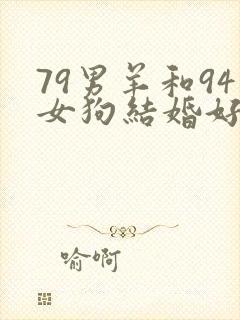 79男羊和94
女狗結婚好
喻啊